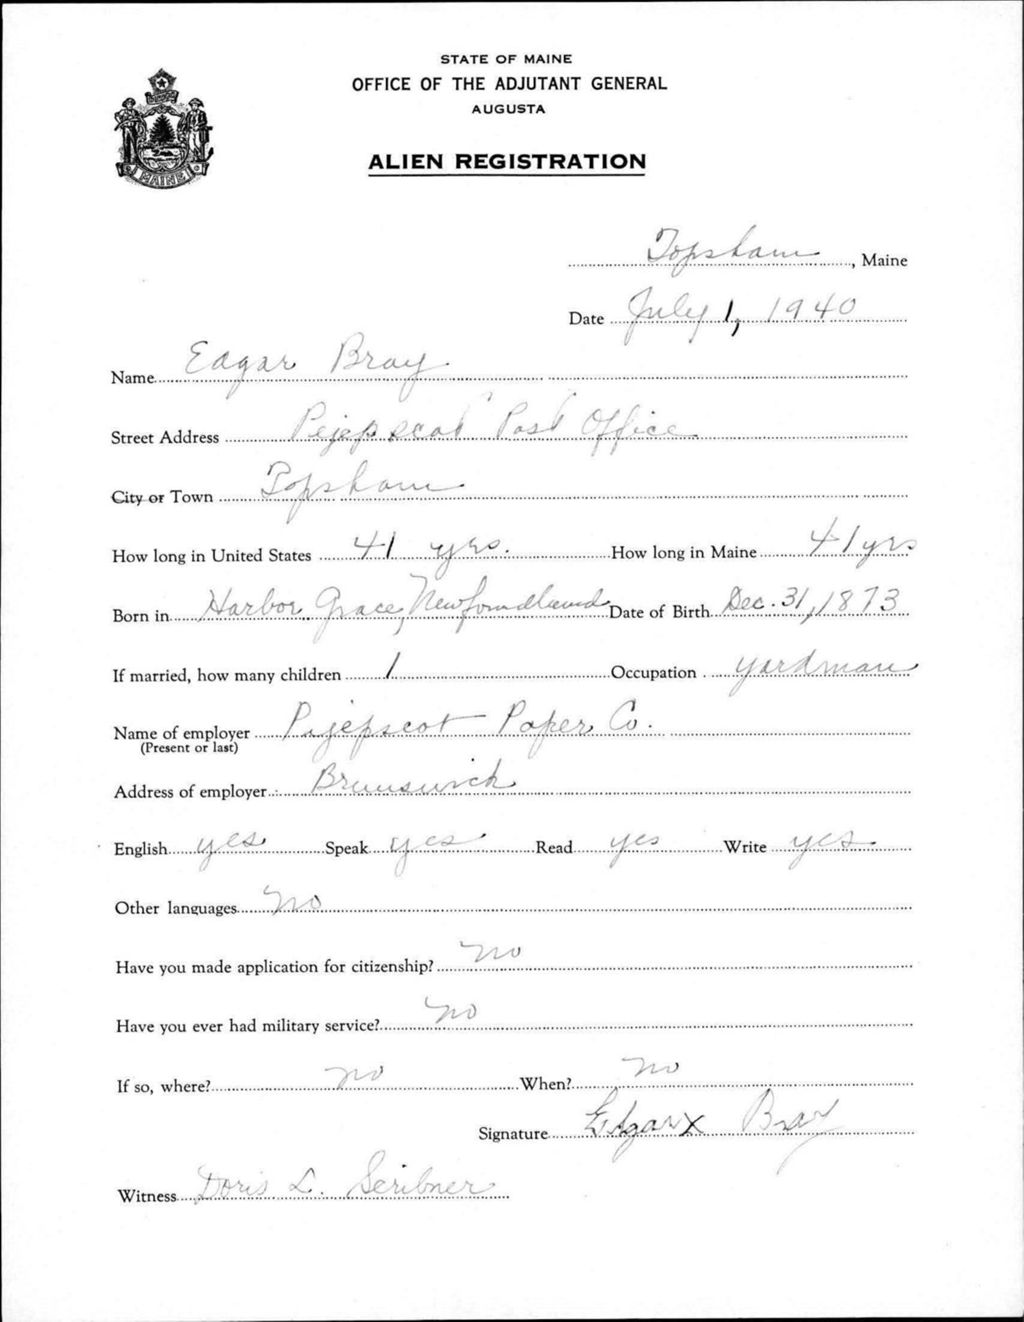 STATE OF MAINE
OFFICE OF THE ADJUTANT GENERAL
AUGUSTA
ALIEN REGISTRATION
MAINE
Topsham, Maine
Date July 1, 1940
Name Edgar Bray
Street Address Pejepscot Post Office
City or Town Topsham
How long in United States 41 yrs. How long in Maine 41 yrs
Born in Harbor Grace, Newfoundland Date of Birth Dec. 31, 1873
If married, how many children 1 Occupation yardman
Name of employer Pejepscot Paper Co.
(Present or last)
Address of employer Brunswick
English yes Speak yes Read yes Write yes
Other languages no
Have you made application for citizenship? no
Have you ever had military service? no
If so, where? no When? no
Signature Edgar x Bray
Witness Doris L. Scribner